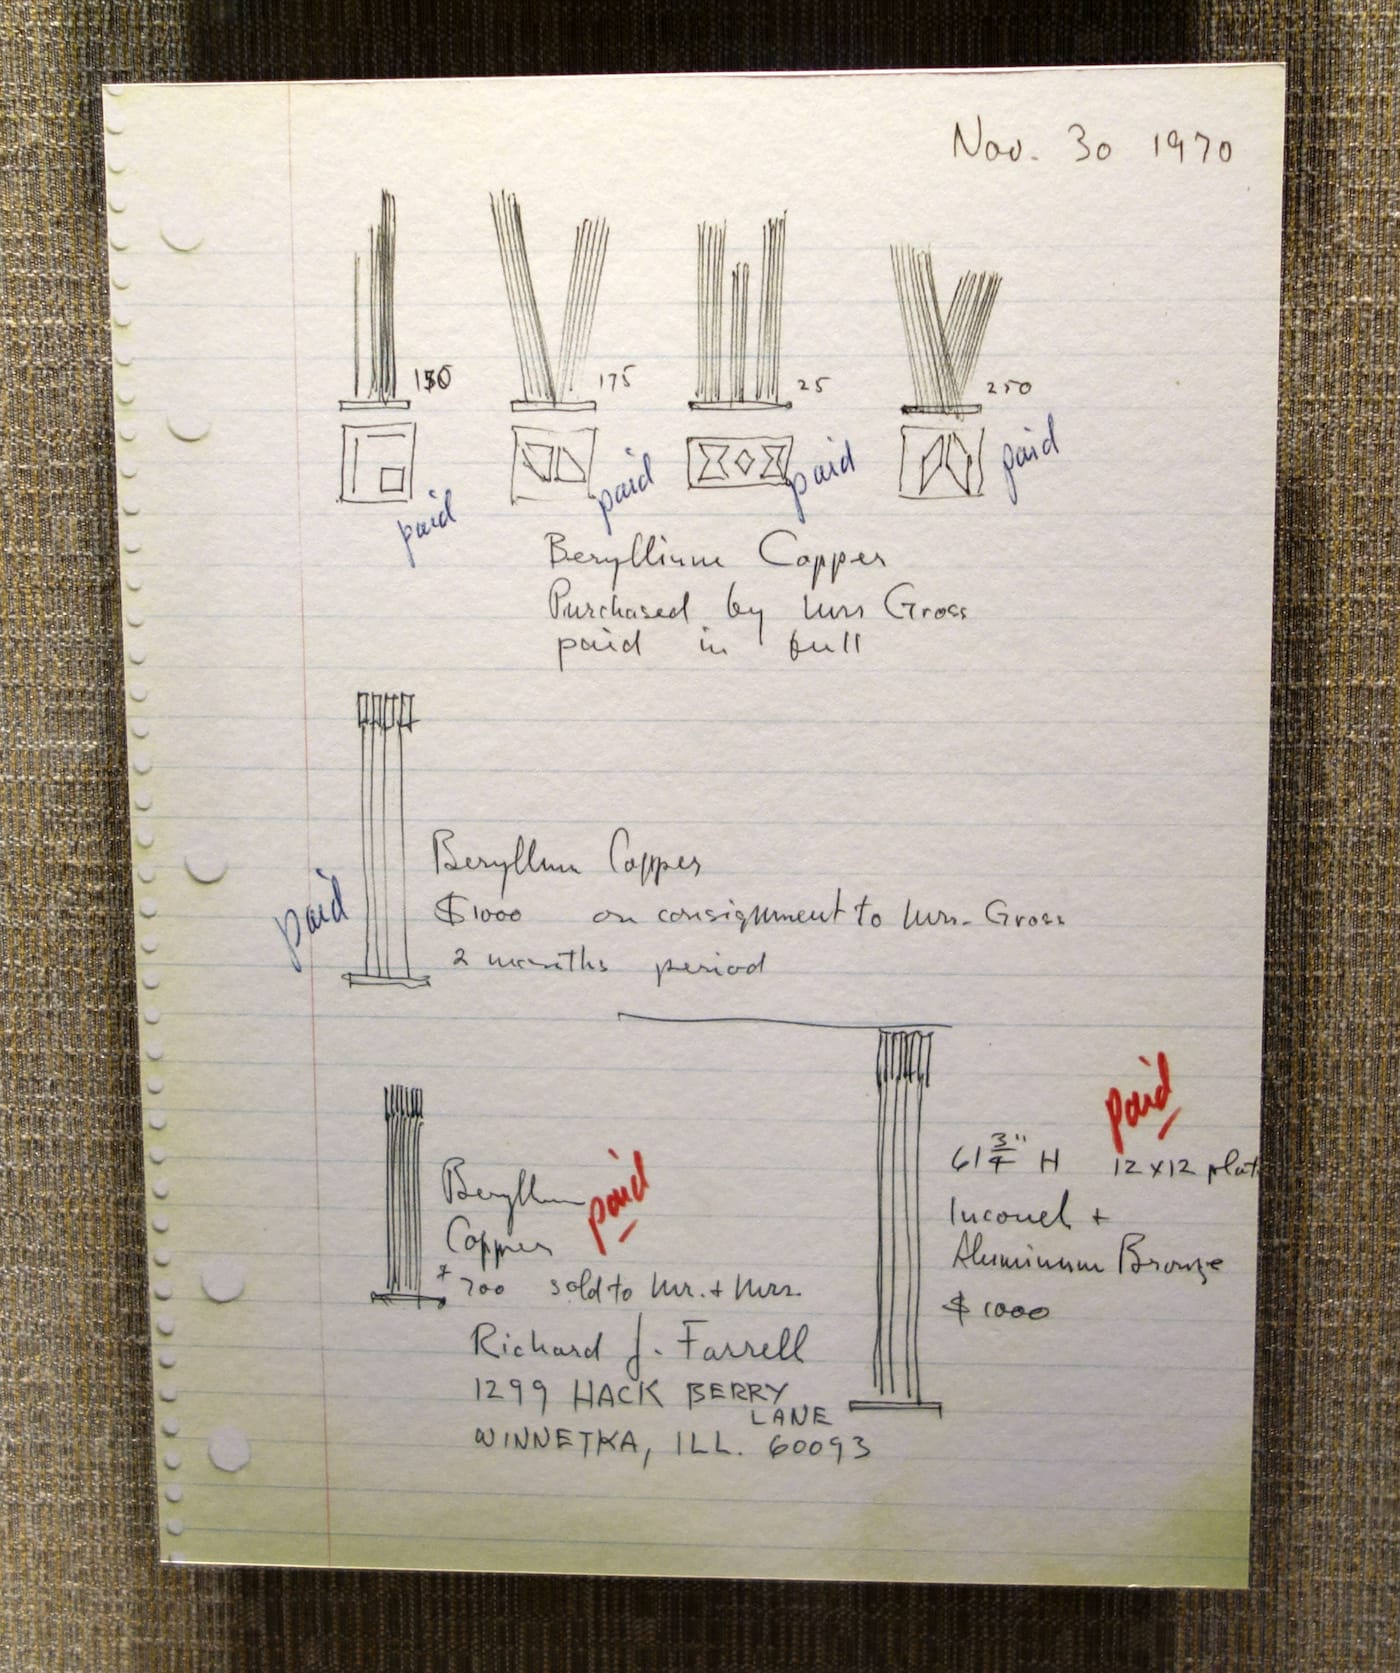 Nov. 30 1970
150 175 25 250
paid paid paid paid
Beryllium Copper
Purchased by Mrs Gross
paid in full
Beryllium Copper
$1000 on consignment to Mrs. Gross
paid
2 months period
paid
61 3/4" H 12 x 12 plate
Inconel +
Aluminum Bronze
$1000
Beryllium
paid
Copper
$700 sold to Mr. + Mrs.
Richard J. Farrell
1299 HACK BERRY
LANE
WINNETKA, ILL. 60093